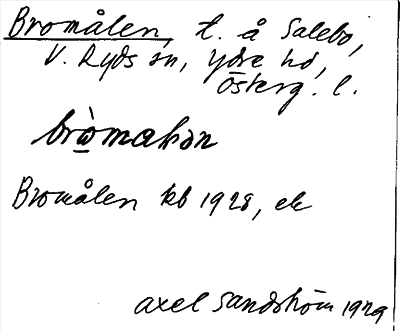 Bromålen, t. å Salebo,
V. Ryds sn, Ydre hd,
Österg. l.
bròmakon
Bromålen kb 1928, ek
Axel Sandström 1929